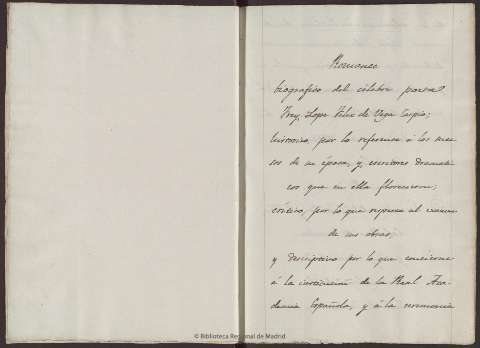 Romance
biografico del célebre poeta
Frey Lope Félix de Vega Carpio;
historico, por lo referente á los suce
sos de su época, y escritores dramati
cos que en ella florecieron;
crítico, por lo que respecta al
de sus obras;
y descriptivo por lo que concierne
á la invitacion de la Real Aca
demia Española, y á la ceremonia
© Biblioteca Regional de Madrid